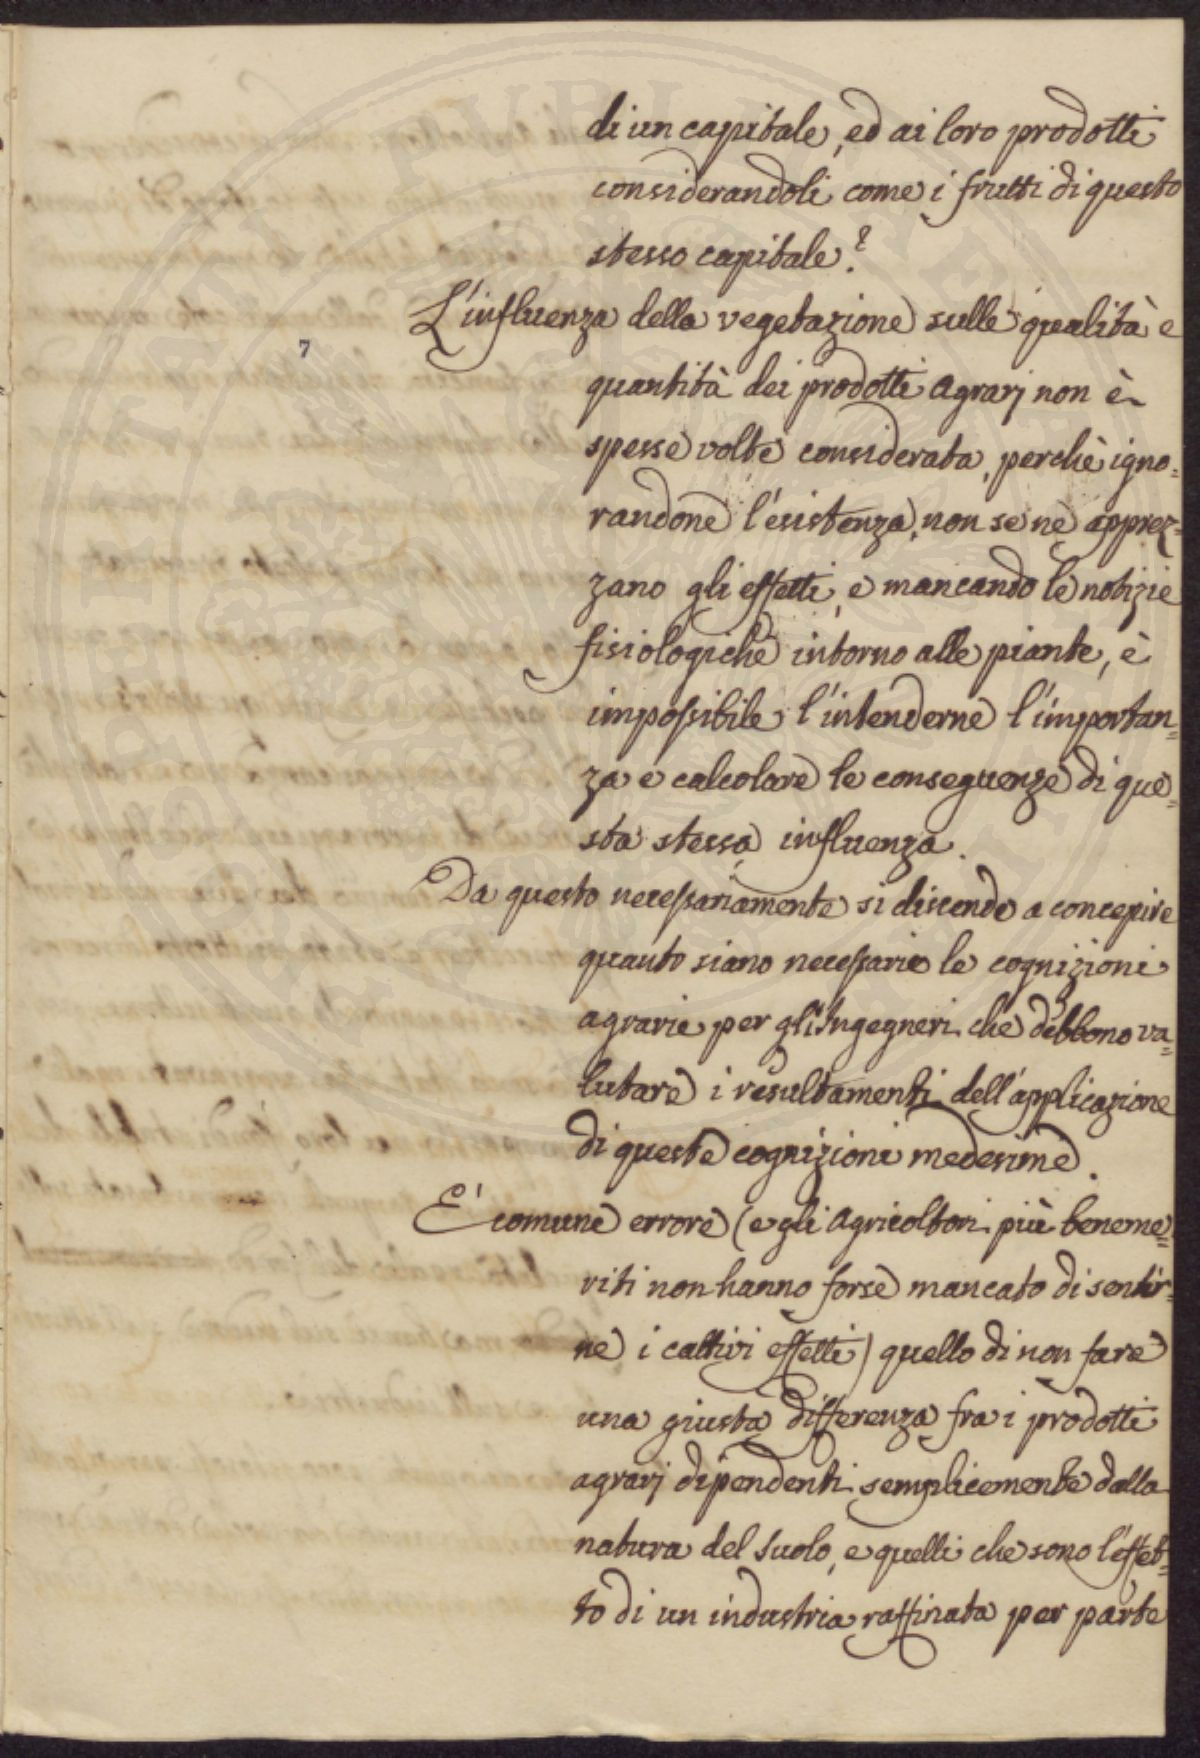 di un capitale, ed ai loro prodotti
considerandoli come i frutti di questo
stesso capitale?
L'influenza della vegetazione sulle qualità e
7
quantità dei prodotti agrarj non è
spesse volte considerata, perchè igno=
randone l'esistenza, non se ne apprez=
zano gli effetti, e mancando le notizie
fisiologiche intorno alle piante, è
impossibile l'intenderne l'importan=
za e calcolare le conseguenze di que=
sta stessa influenza.
Da questo necessariamente si discende a concepire
quanto siano necessarie le cognizioni
agrarie per gl'Ingegneri che debbono va=
lutare i resultamenti dell'applicazione
di queste cognizioni medesime.
E' comune errore (e gli Agricoltori più beneme=
riti non hanno forse mancato di sentir=
ne i cattivi effetti) quello di non fare
una giusta differenza fra i prodotti
agrarj dipendenti semplicemente dalla
natura del suolo, e quelli che sono l'effet=
to di un industria raffinata per parte